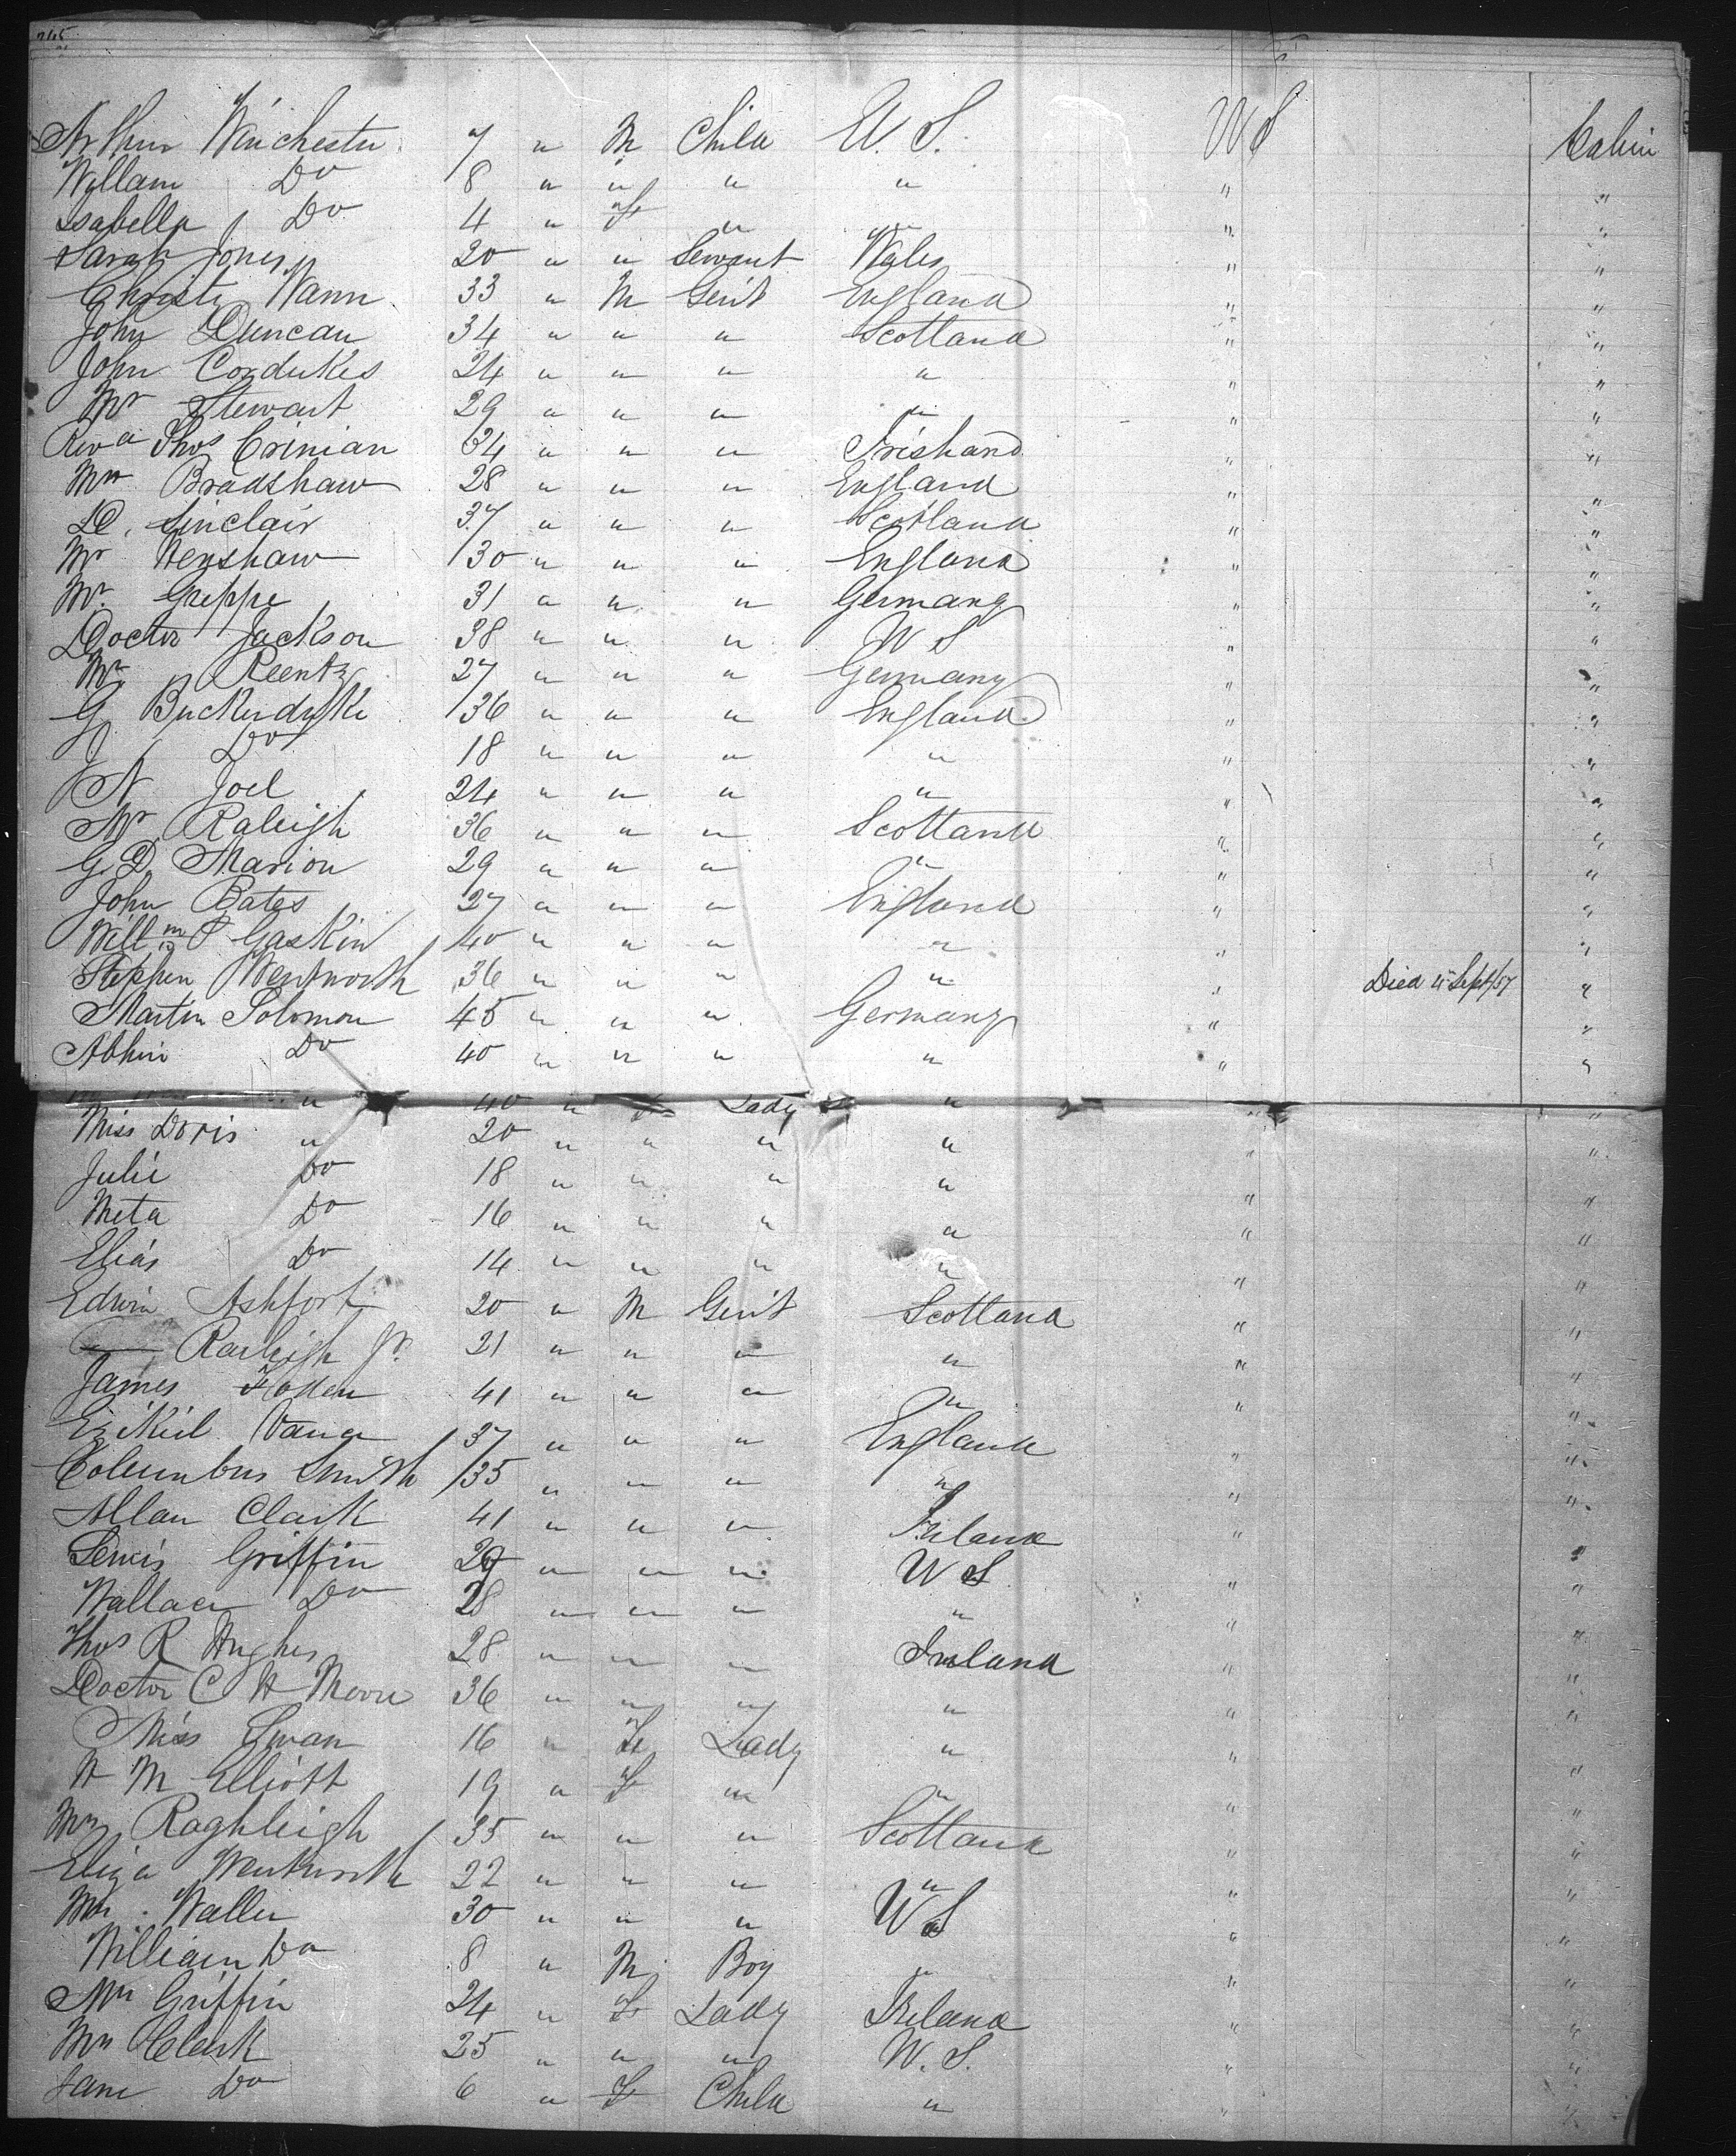 245
Arthur Winchester 7 " M Child U. S. U S Cabin
Willam Do 8 " " " " " "
Isabella Do 4 " F " " " "
Sarah Jones 20 " " Servant Wales " "
Christr Wann 33 " M Gent England " "
John Duncan 34 " " " Scotland " "
John Cordukes 24 " " " " " "
Mr Stewart 29 " " " " " "
Revd Thos Crinian 34 " " " Irishand " "
Mr Bradshaw 28 " " " England " "
D. Sinclair 37 " " " Scotland " "
Mr Henshaw 30 " " " England " "
Mr. Greppe 31 " " " Germany " "
Doctor Jackson 38 " " " U S " "
Mr Reentz 27 " " " Germany " "
G Buckerdyke 36 " " " England " "
J Do 18 " " " " " "
N Joel 24 " " " " " "
Mr Raleigh 36 " " " Scotland " "
G. D. Marion 29 " " " " " "
John Bates 27 " " " England " "
Willm P Gaskin 40 " " " " " "
Stephen Wentworth 36 " " " " " Died 4 Sept/57 "
Martin Solomon 45 " " " Germany " "
Do 40 " " " " " "
" 40 " F Lady " " "
Miss Doris " 20 " " " " " "
Julie Do 18 " " " " " "
Meta Do 16 " " " " " "
Elias Do 14 " " " " " "
Edwin Ashfort 20 " M Gent Scotland " "
Raileigh Jr. 21 " " " " " "
James Hoden 41 " " " " " "
Ezikiel Vance 37 " " " England " "
Columbus Smith 35 " " " " " "
Allan Clark 41 " " " Ireland " "
Lewis Griffin 29 " " " U S " "
Wallace Do 28 " " " " " "
Thos R Hughes 28 " " " Ireland " "
Doctor C H Moore 36 " " " " " "
Miss Swan 16 " F Lady " " "
H M Elliott 19 " F " " " "
Mrs Raghleigh 35 " " " Scotland " "
Eliza Wentworth 22 " " " " " "
Mrs. Waller 30 " " " U S " "
William Do 8 " M Boy " " "
Mrs Griffin 24 " F Lady Ireland " "
Mrs Clark 25 " " " U. S. " "
Jane Do 6 " F Child " " "